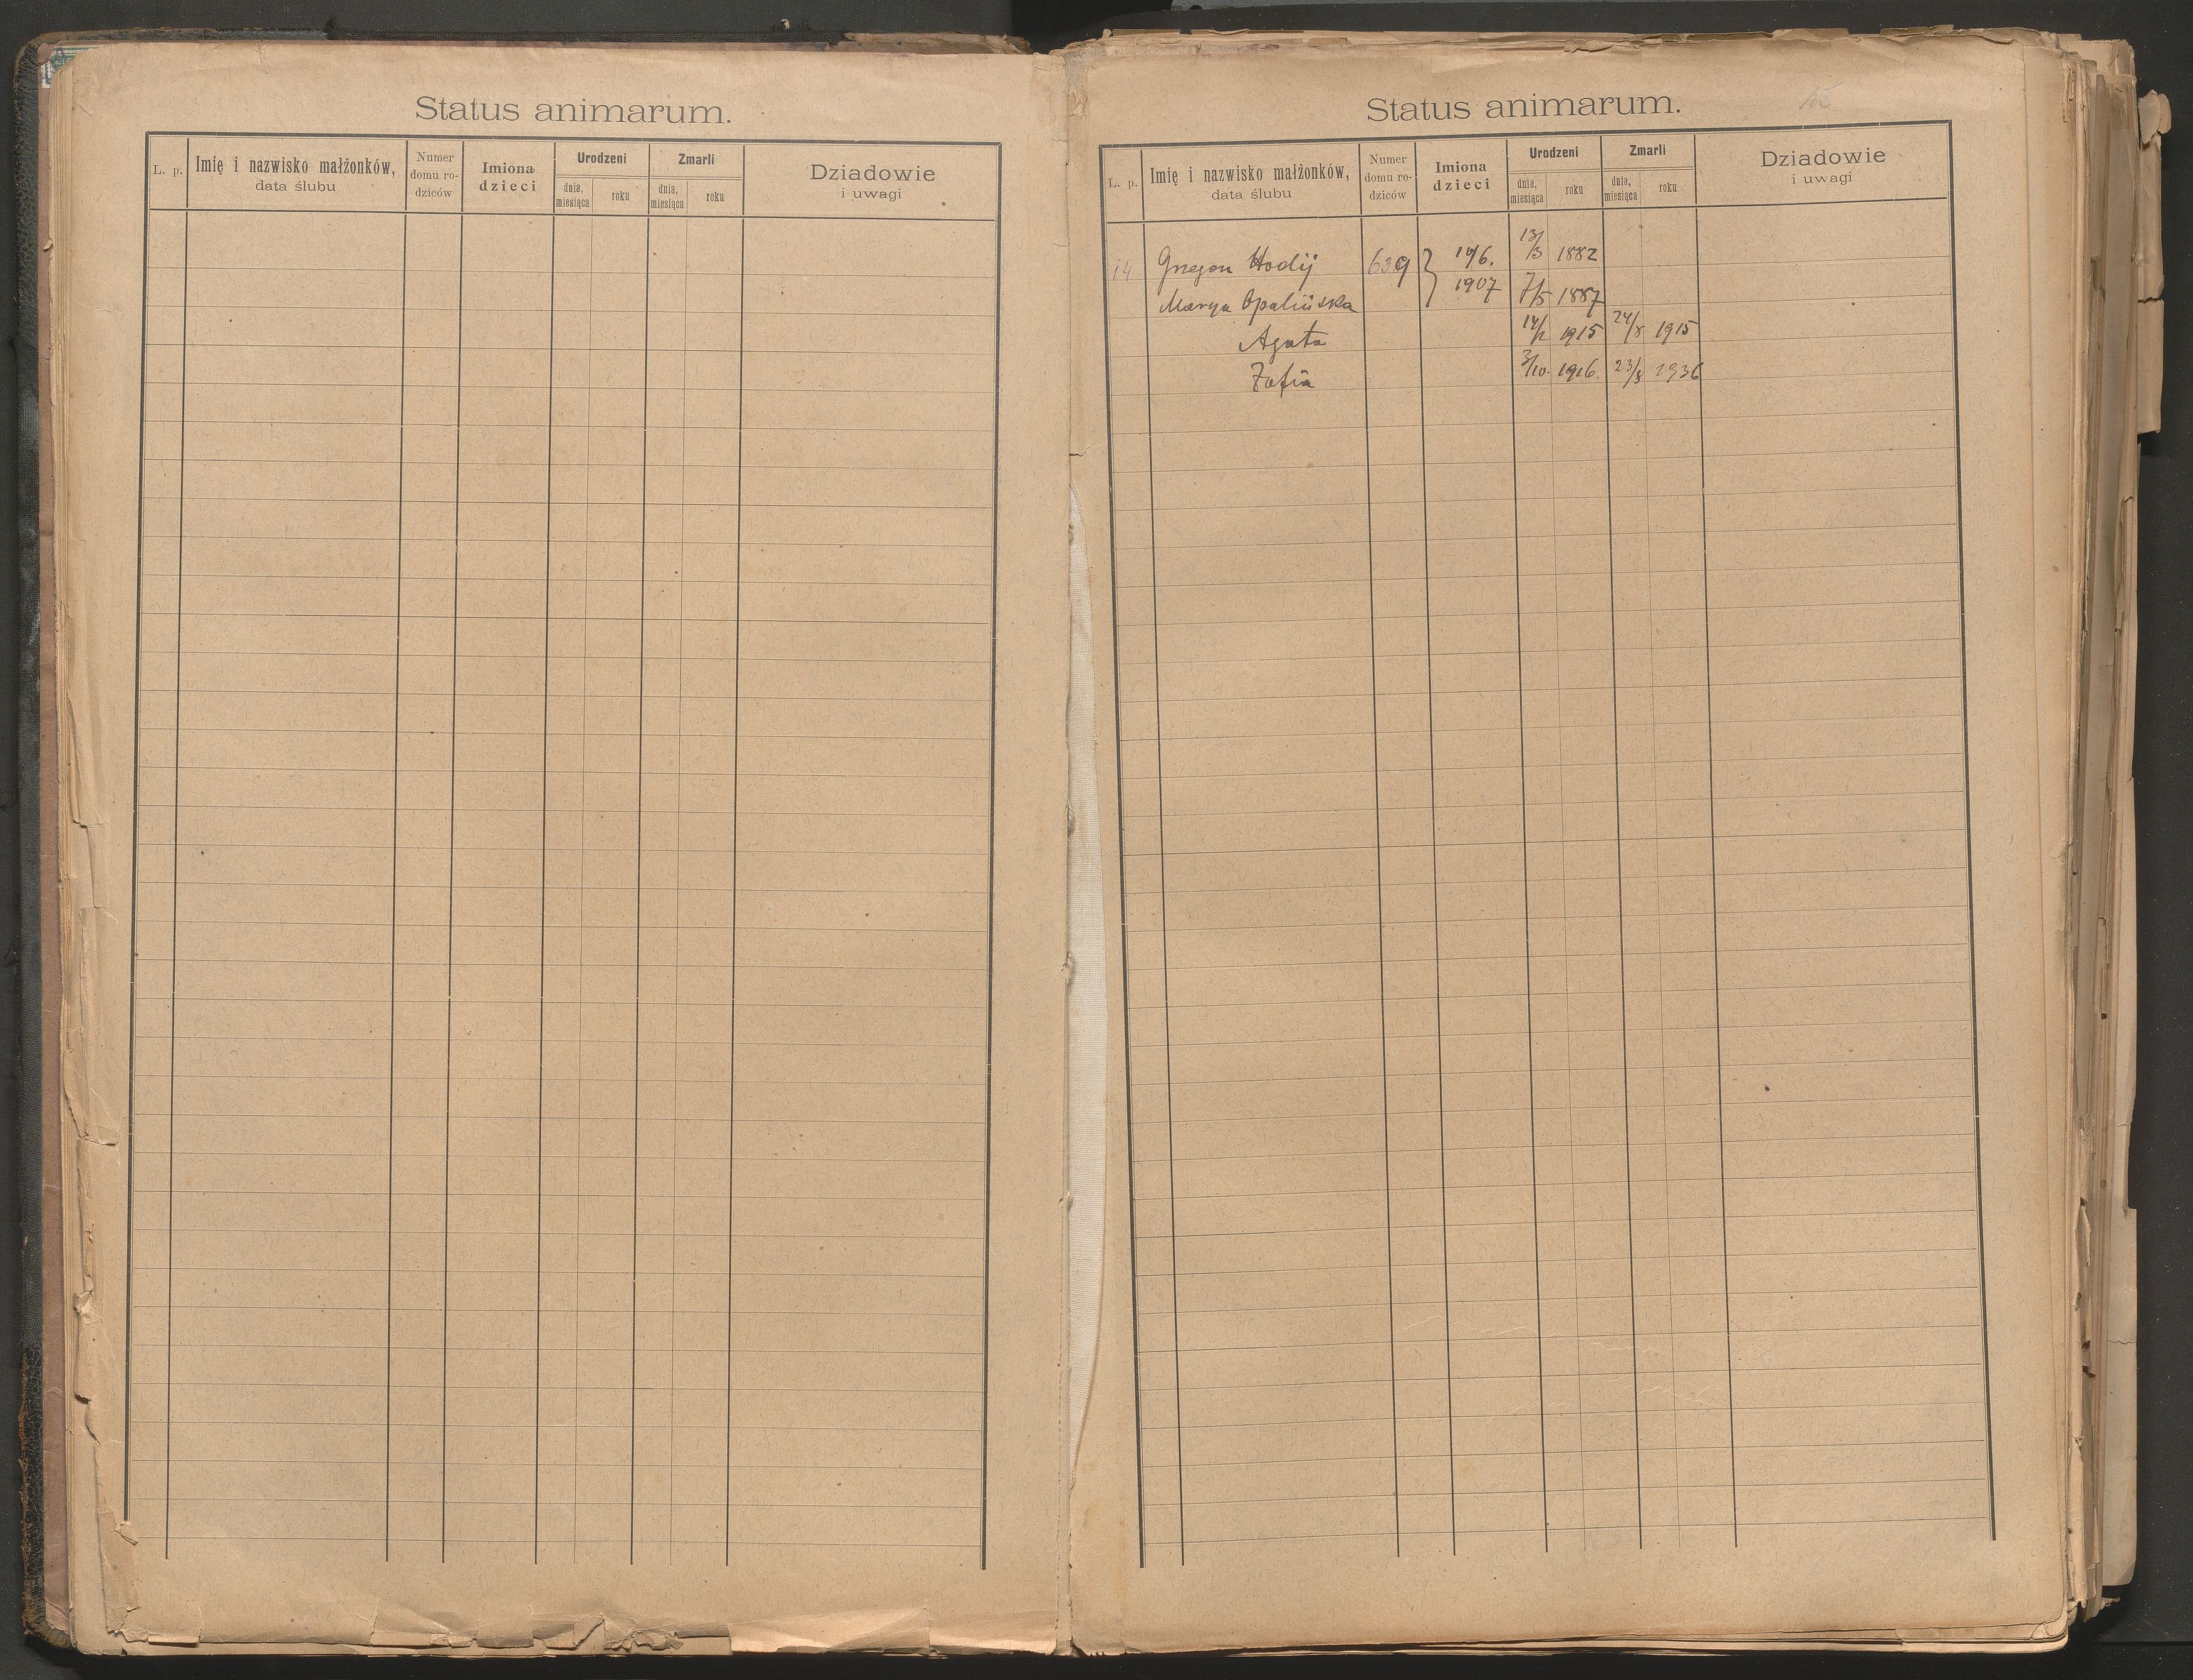 Status animarum.
L. p. Imię i nazwisko małżonków, data ślubu Numer domu rodziców Imiona dzieci Urodzeni dnia, miesiąca roku Zmarli dnia, miesiąca roku Dziadowie i uwagi
Status animarum.
L. p. Imię i nazwisko małżonków, data ślubu Numer domu rodziców Imiona dzieci Urodzeni dnia, miesiąca roku Zmarli dnia, miesiąca roku Dziadowie i uwagi
14 Hodij 639 } 13/3 1882
Marya Opalińska 1907 7/5 1887
Agata 1915 24/8 1915
Zofia 3/10. 1916. 23/3 1936